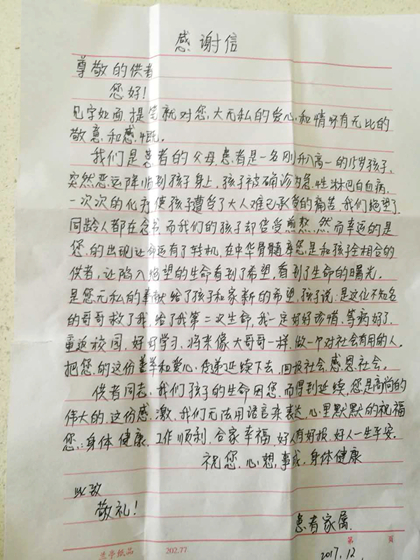 感谢信
尊敬的供者
您好!
见字如面提笔就对您,大无私的爱心,和情怀有无比的
敬意和感慨。
我们是患者的父母患者是一名刚升入高一的15岁孩子,
突然恶运降临到孩子身上,孩子被确诊为急性淋巴白血病,
一次次的化疗使孩子遭售了大人难已承受的痛苦,我们绝望了
同龄人都在念书而我们的孩子却倍受煎熬,然而幸运的是
您的出现让命运有了转机,在中华骨髓库您是和孩子全相合的
供者,让陷入绝望的生命看到了希望,看到了生命的曙光。
是您无私的奉献给了孩子和家新的希望,孩子说,是这位不知名
的哥哥救了我给了我第二次生命,我一定好好珍惜,等病好了.
重返校园,好好学习,将来像大哥哥一样,做一个对社会有用的人.
把您的这份善举和爱心,传递延续下去,回报社会感恩社会。
供者同志,我们孩子的生命因您,而得到延续,您是高尚的
伟大的,这份感激,我们无法用语言来表达,心里默默的祝福
您,身体健康,工作顺利,合家幸福,好人有好报,好人一生平安,
祝您,心想,事成,身体健康
此致
敬礼!
患者家属.
202.77
2017.12